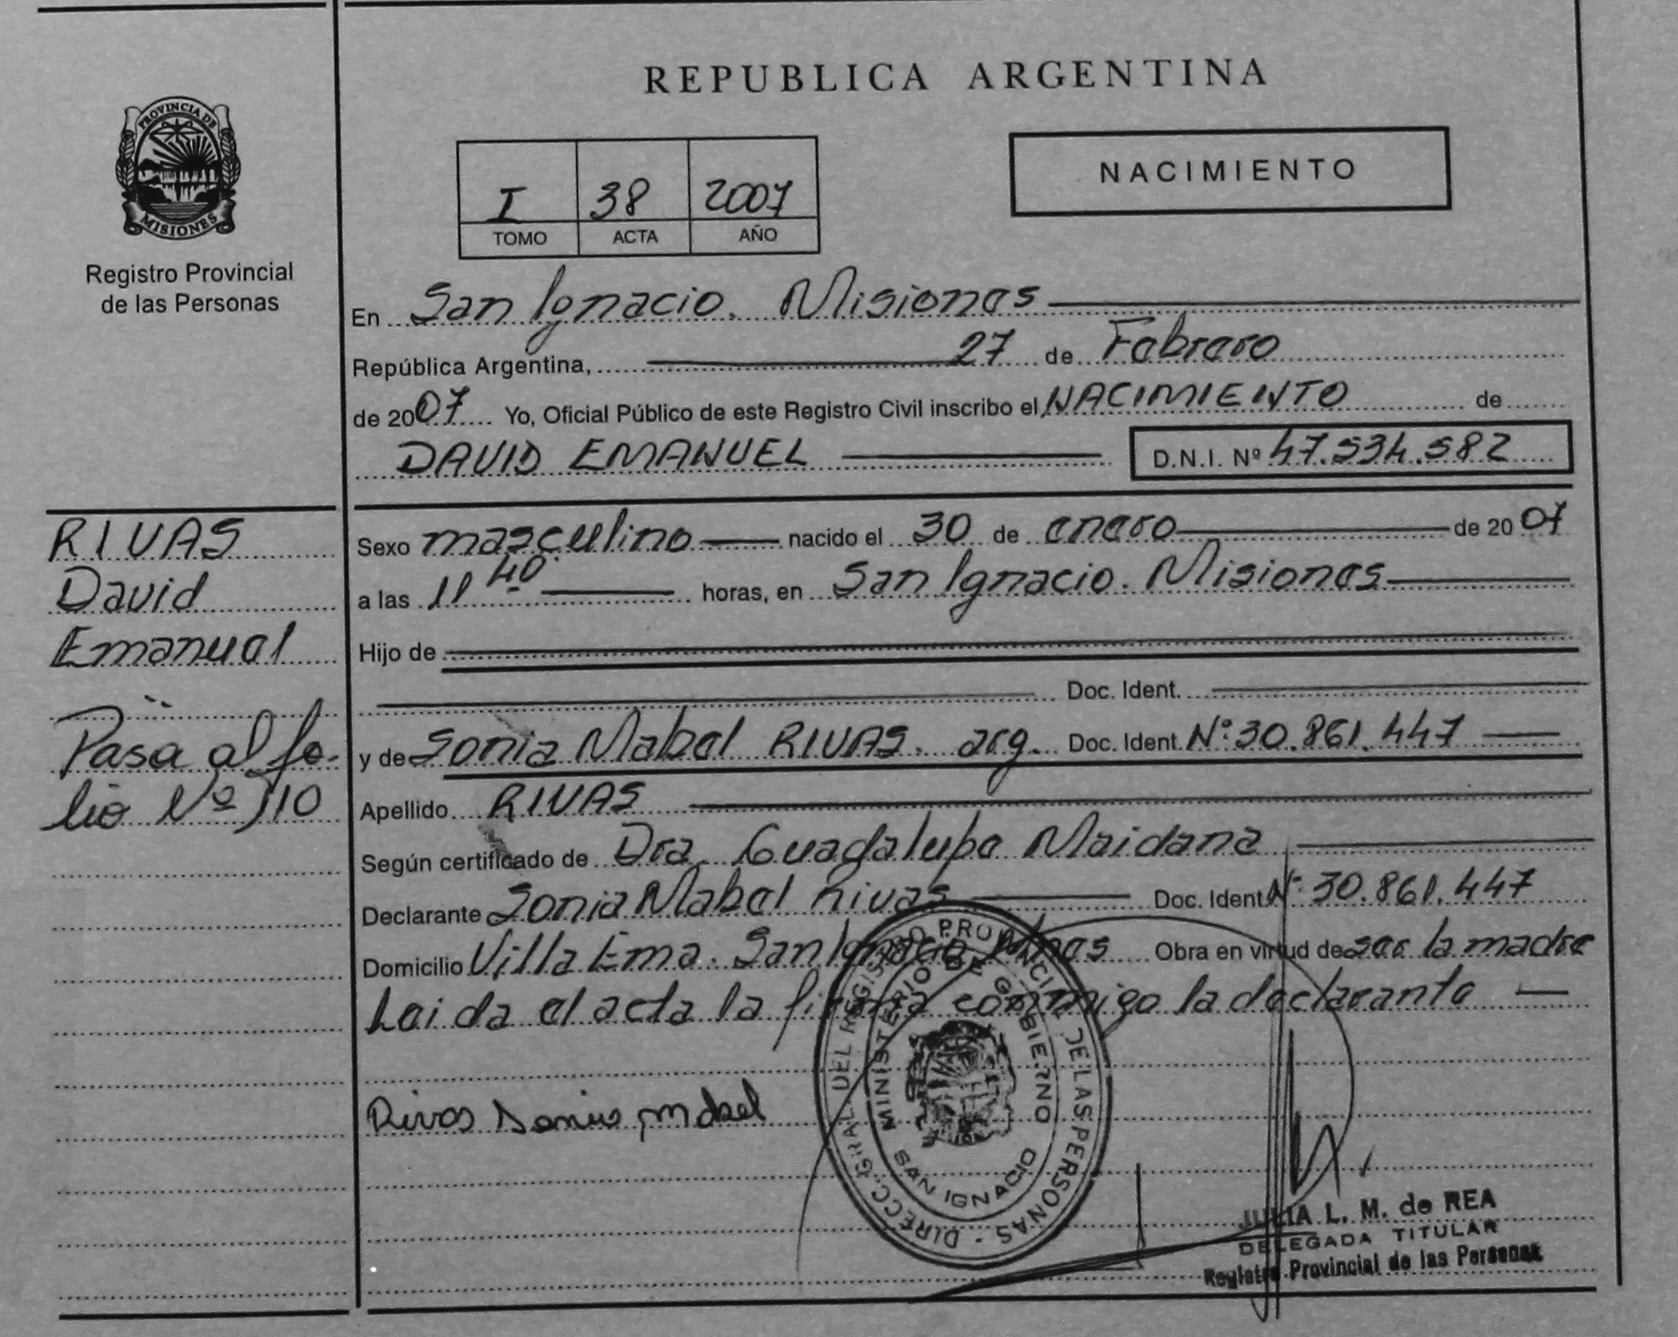 REPUBLICA ARGENTINA
PROVINCIA DE MISIONES
Registro Provincial
de las Personas
I 38 2007
TOMO ACTA AÑO
NACIMIENTO
En San Ignacio. Misiones
República Argentina, 27 de Febrero
de 2007 Yo, Oficial Público de este Registro Civil inscribo el NACIMIENTO de
DAVID EMANUEL D.N.I. Nº 47.534.582
RIVAS
David
Emanuel
Pasa al fo-
lio Nº 110
Sexo masculino nacido el 30 de enero de 2007
a las 11 40 horas, en San Ignacio. Misiones
Hijo de
Doc. Ident.
y de Sonia Mabel RIVAS. arg. Doc. Ident. Nº 30.861.447
Apellido RIVAS
Según certificado de Dra. Guadalupe Maidana
Declarante Sonia Mabel Rivas Doc. Ident Nº 30.861.447
Domicilio Villa Ema. San Ignacio Mnes Obra en virtud de ser la madre
Leida el acta la firma conmigo la declarante
Rivas Sonia mabel
DIRECC. GRAL. DEL REGISTRO PROVINCIAL DE LAS PERSONAS -
MINISTERIO DE GOBIERNO
SAN IGNACIO
JULIA L. M. de REA
DELEGADA TITULAR
Registro Provincial de las Personas